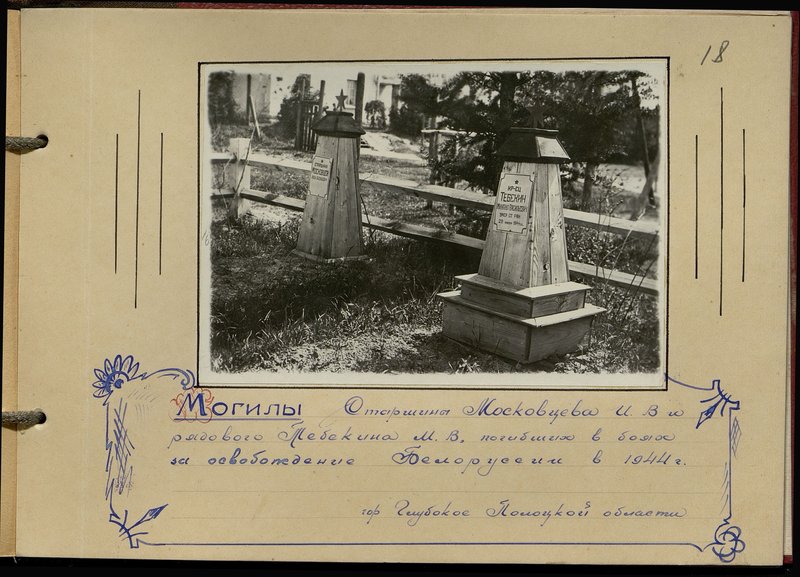 18
СТАРШИНА
МОСКОВЦЕВ
КР-ЕЦ
ТЕБЕКИН
Могилы Старшина Московцева И. В и
рядового Тебекина М. В. погибших в боях
за освобождение Белоруссии в 1944 г.
гор Глубокое Полоцкой области